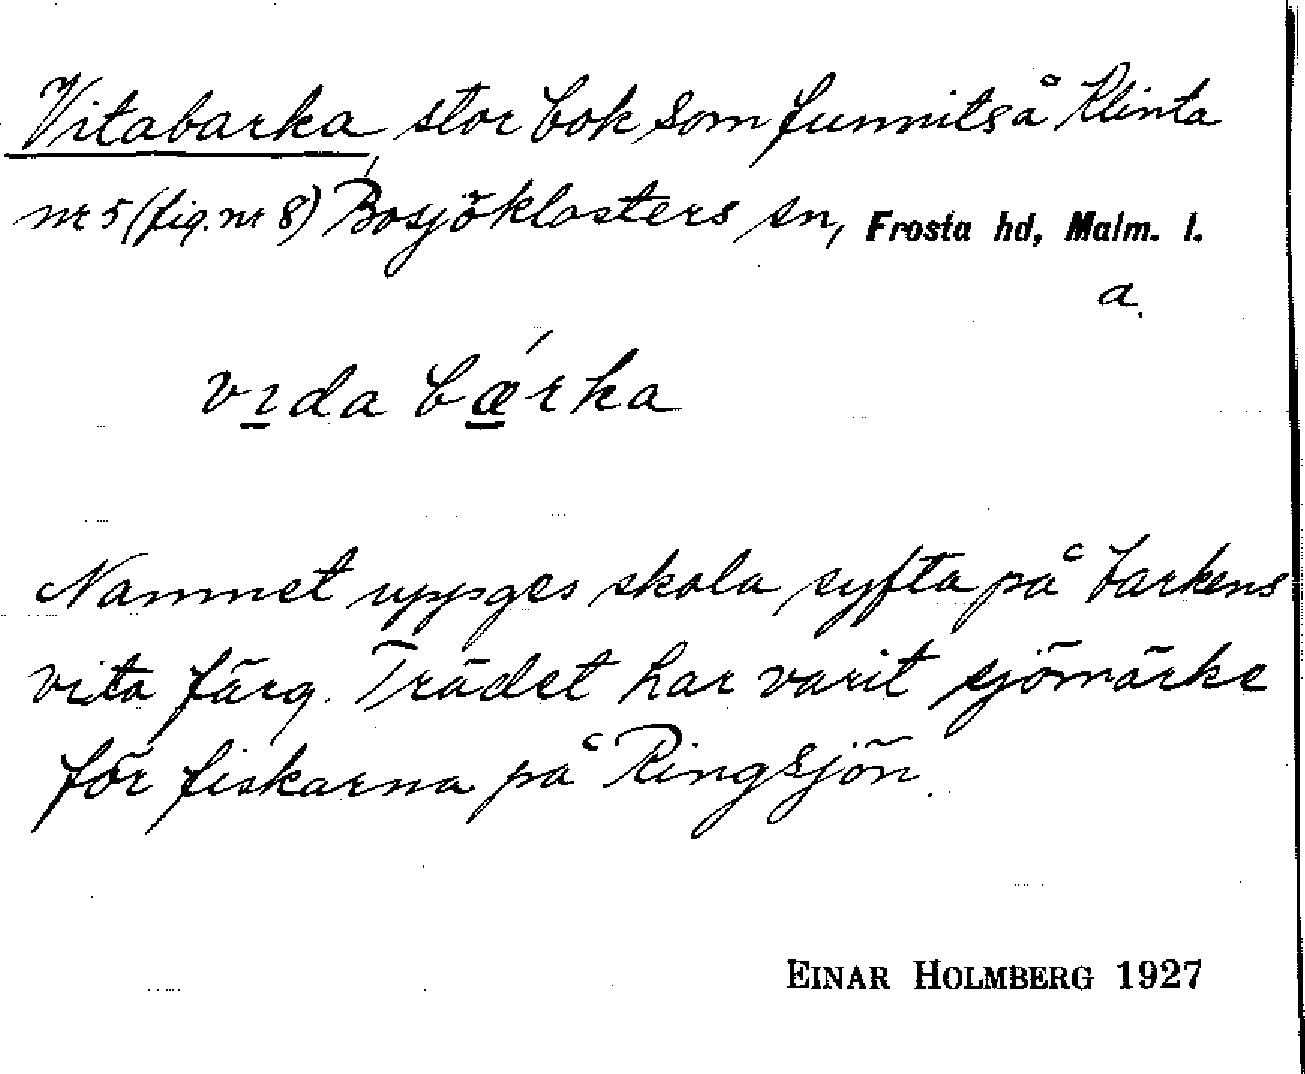 Vitabarka stor bok som funnits å Klinta
nr 5 (fig. nr 8) Bosjöklosters sn, Frosta hd, Malm. l.
a.
vıda bærka
Namnet uppges skola syfta på barkens
vita färg. Trädet har varit sjömärke
för fiskarna på Ringsjön.
EINAR HOLMBERG 1927